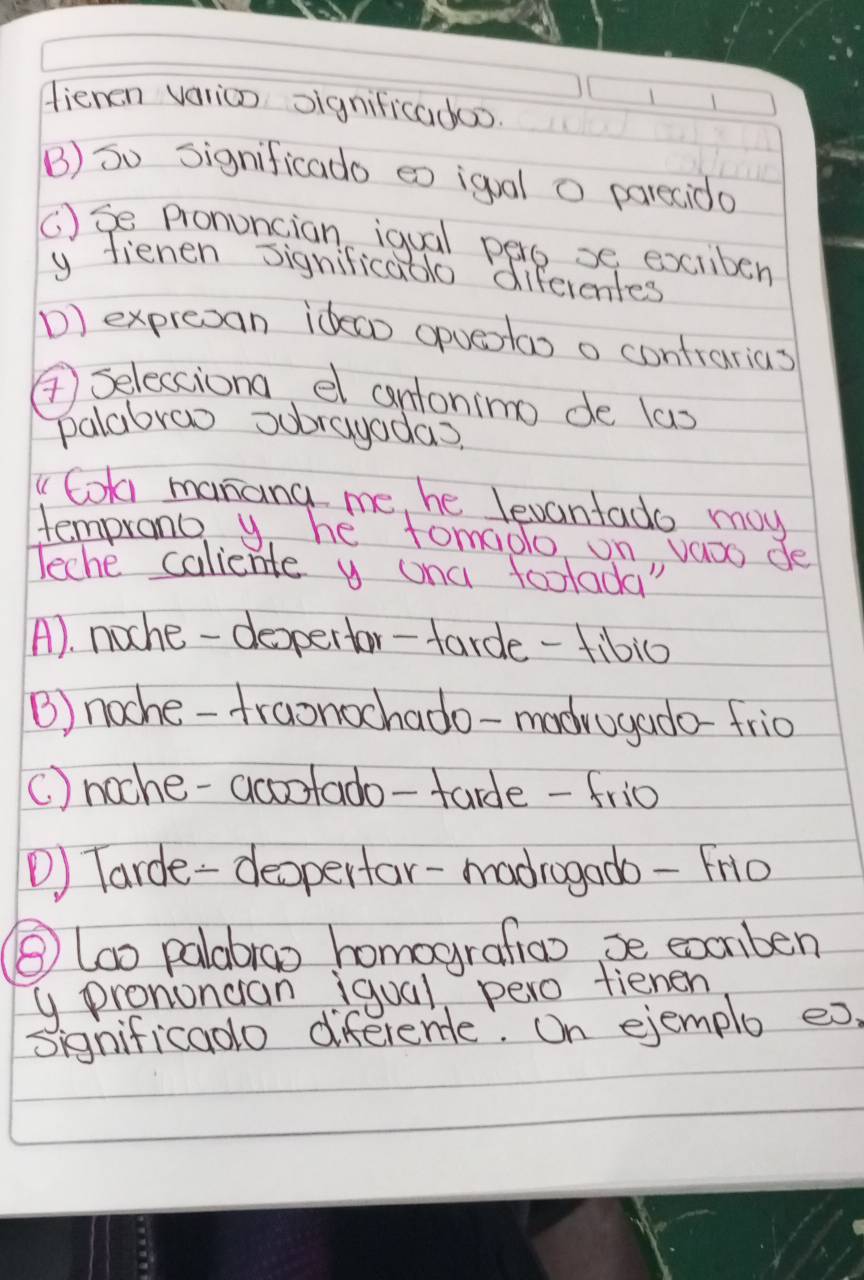 tienen varios significados.
B) Su significado es igual o parecido
C) Se Pronuncian igual pero se escriben
y tienen significado diferentes
D) expresan ideas opuestas o contrarias
7) Selecciona el antonimo de las
palabras subrayadas.
"Esta mañana me he levantado muy
temprano y he tomado un vaso de
leche caliente y una tostada"
A). noche - despertar - tarde - tibio
B) noche - trasnochado - madrugado - frio
C) noche - acostado - tarde - frio
D) Tarde - despertar - madrugado - Frio
8) Las palabras homografias se escriben
y pronuncian igual pero tienen
significado diferente. Un ejemplo es.